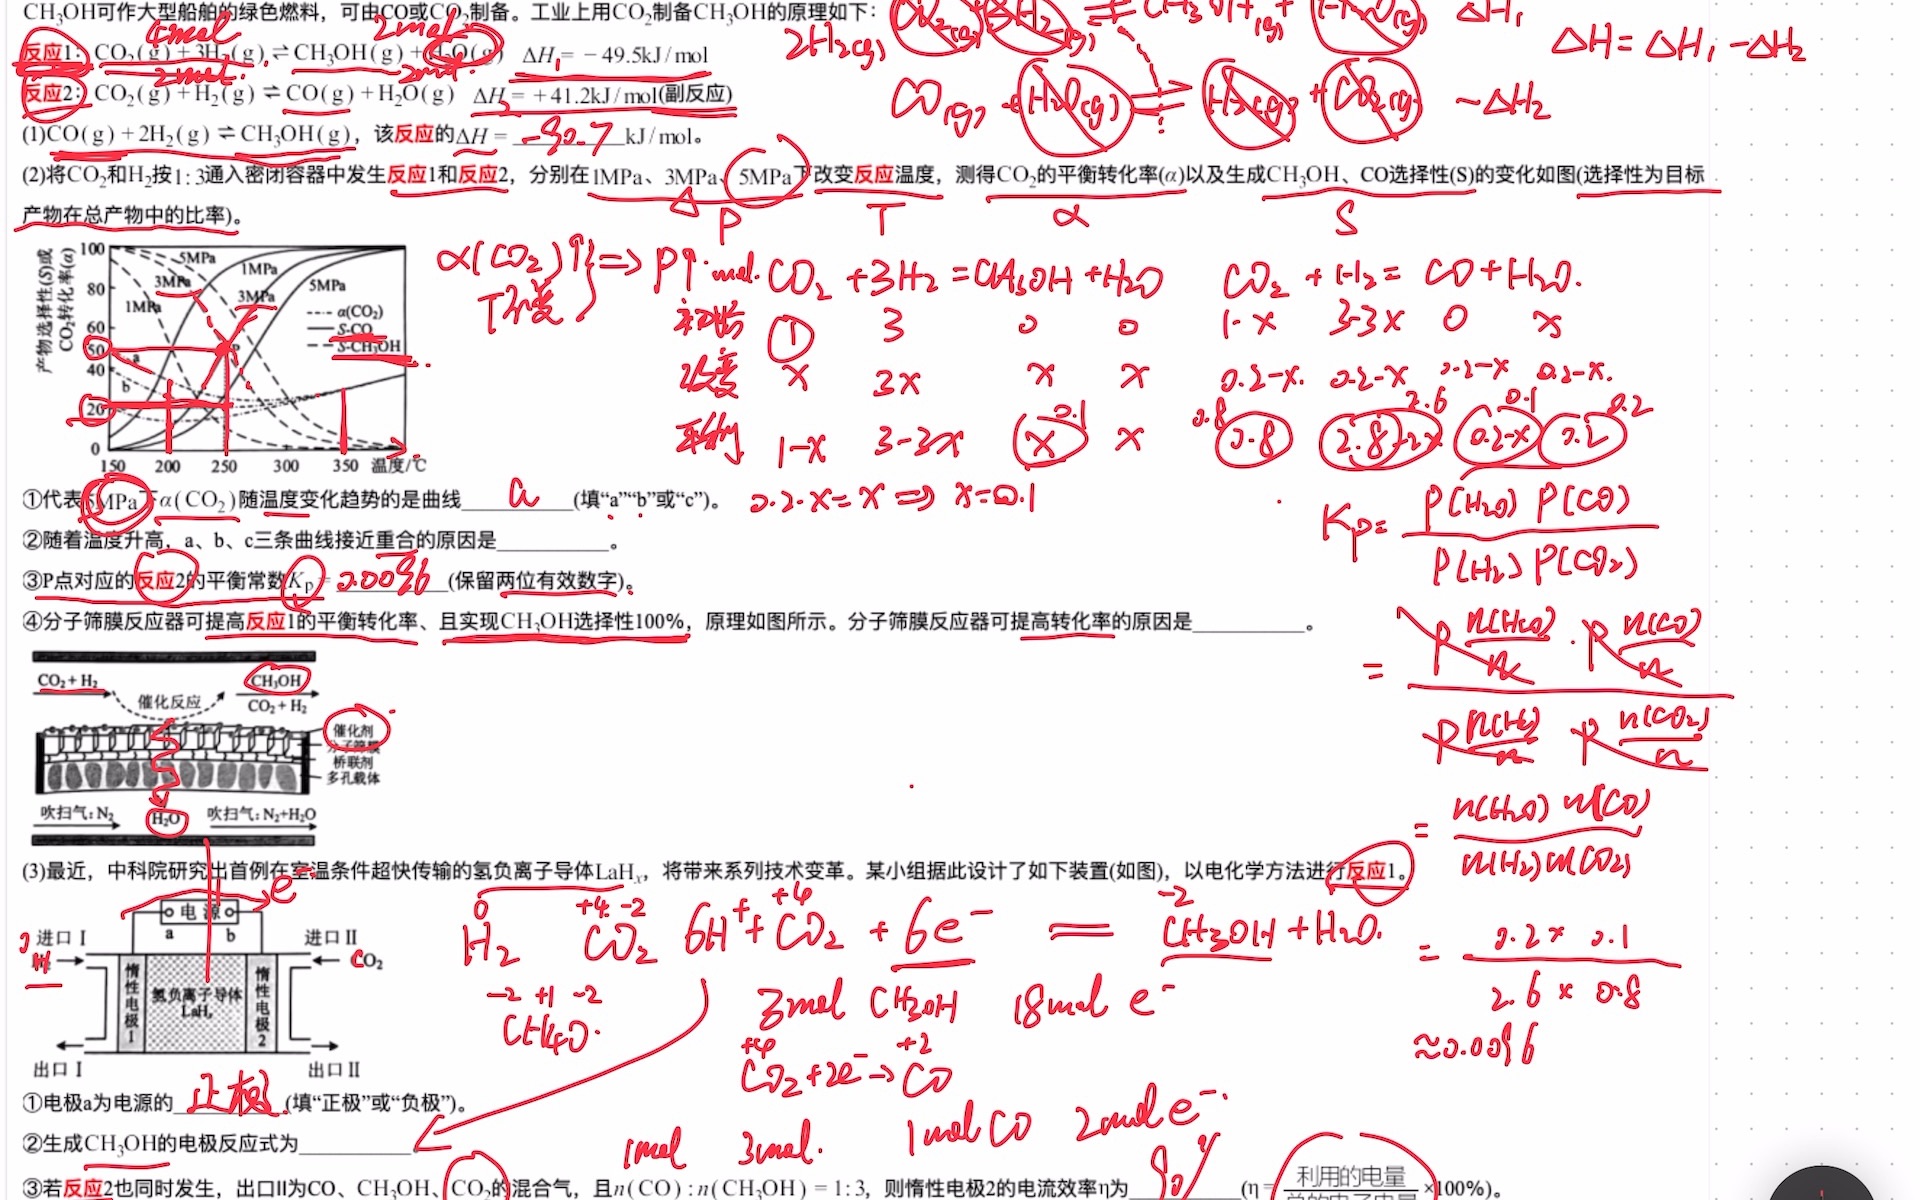 CH₃OH可作大型船舶的绿色燃料，可由CO或CO₂制备。工业上用CO₂制备CH₃OH的原理如下：
2H₂(g)
ΔH₁
反应1：CO₂(g)+3H₂(g)⇌CH₃OH(g)+H₂O(g) ΔH₁=－49.5kJ/mol
ΔH=ΔH₁-ΔH₂
反应2：CO₂(g)+H₂(g)⇌CO(g)+H₂O(g) ΔH₂=+41.2kJ/mol(副反应)
CO(g)+H₂O(g)⇌H₂(g)+CO₂(g) -ΔH₂
(1)CO(g)+2H₂(g)⇌CH₃OH(g)，该反应的ΔH=-90.7kJ/mol。
(2)将CO₂和H₂按1:3通入密闭容器中发生反应1和反应2，分别在1MPa、3MPa、5MPa下改变反应温度，测得CO₂的平衡转化率(α)以及生成CH₃OH、CO选择性(S)的变化如图(选择性为目标
产物在总产物中的比率)。
P T α S
产物选择性(S)或
CO₂转化率(α)
100
80
60
50
40
20
0
5MPa 1MPa
3MPa 3MPa 5MPa
1MPa
α(CO₂)
S-CO
S-CH₃OH
a
b
P
150 200 250 300 350 温度/℃
α(CO₂)↑
T不变
⇒P↑
mol. CO₂+3H₂=CH₃OH+H₂O CO₂+H₂=CO+H₂O.
初始 1 3 0 0 1-x 3-3x 0 x
改变 x 3x x x 0.2-x. 0.2-x 0.2-x 0.2-x.
0.1 0.8 2.6 0.1 0.2
平衡 1-x 3-3x x x 0.8 2.8+2x 0.2-x 0.2
①代表5MPa下α(CO₂)随温度变化趋势的是曲线a(填“a”“b”或“c”)。
0.2-x=x⇒x=0.1
②随着温度升高，a、b、c三条曲线接近重合的原因是________。
③P点对应的反应2的平衡常数Kp=0.0096(保留两位有效数字)。
④分子筛膜反应器可提高反应1的平衡转化率、且实现CH₃OH选择性100%，原理如图所示。分子筛膜反应器可提高转化率的原因是________。
Kp=P(H₂O)P(CO)
P(H₂)P(CO₂)
=P n(H₂O)/n · P n(CO)/n
P n(H₂)/n P n(CO₂)/n
=n(H₂O)n(CO)
n(H₂)n(CO₂)
=0.2×0.1
2.6×0.8
≈0.0096
CO₂+H₂ CH₃OH
催化反应 CO₂+H₂
催化剂
分子筛膜
桥联剂
多孔载体
吹扫气：N₂ H₂O 吹扫气：N₂+H₂O
(3)最近，中科院研究出首例在室温条件超快传输的氢负离子导体LaHₓ，将带来系列技术变革。某小组据此设计了如下装置(如图)，以电化学方法进行反应1。
e⁻
电源
a b
进口Ⅰ 进口Ⅱ
CO₂
惰性电极1
氢负离子导体
LaHₓ
惰性电极2
出口Ⅰ 出口Ⅱ
0 +4 -2 +4 -2
H₂ CO₂ 6H⁺+CO₂+6e⁻=CH₃OH+H₂O.
-2 +1 -2
CH₄O.
3mol CH₃OH 18mol e⁻
+4 +2
CO₂+2e⁻→CO
①电极a为电源的正极(填“正极”或“负极”)。
1mol CO 2mol e⁻.
②生成CH₃OH的电极反应式为________
1mol 3mol.
③若反应2也同时发生，出口Ⅱ为CO、CH₃OH、CO₂的混合气，且n(CO):n(CH₃OH)=1:3，则惰性电极2的电流效率η为90%(η=利用的电量×100%)。